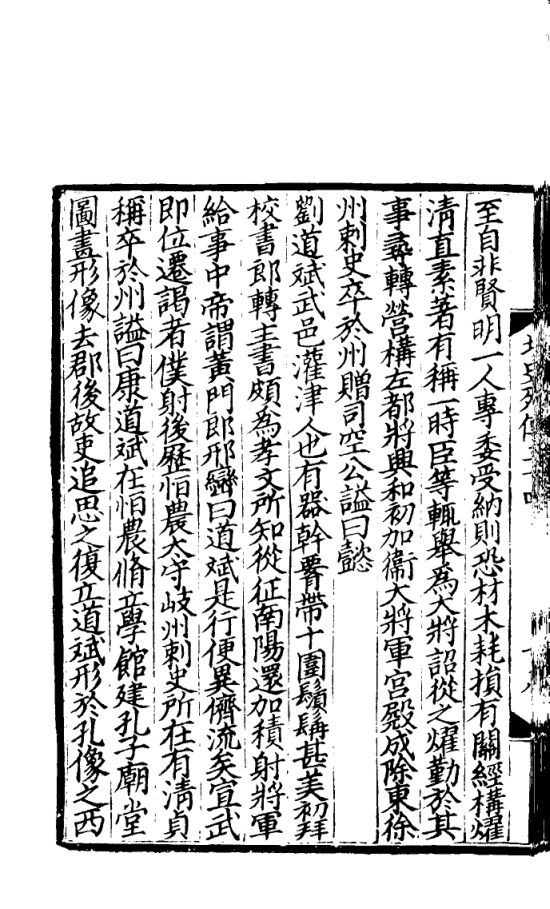 至自非賢明一人專委受納則恐材木耗損有關經構燿
清直素著有稱一時臣等輒舉爲大將詔從之燿勤於其
事尋轉營構左都將興和初加衞大將軍宮殿成除東徐
州刺史卒於州贈司空公謚曰懿
劉道斌武邑灌津人也有器幹䐴帶十圍鬚髯甚美初拜
校書郎轉主書頗爲孝文所知從征南陽還加積射將軍
給事中帝謂黃門郎邢巒曰道斌是行便異儕流矣宣武
即位遷謁者僕射後歷恒農太守岐州刺史所在有清貞
稱卒於州謚曰康道斌在恒農脩立學館建孔子廟堂
圖畫形像去郡後故吏追思之復立道斌形於孔像之西